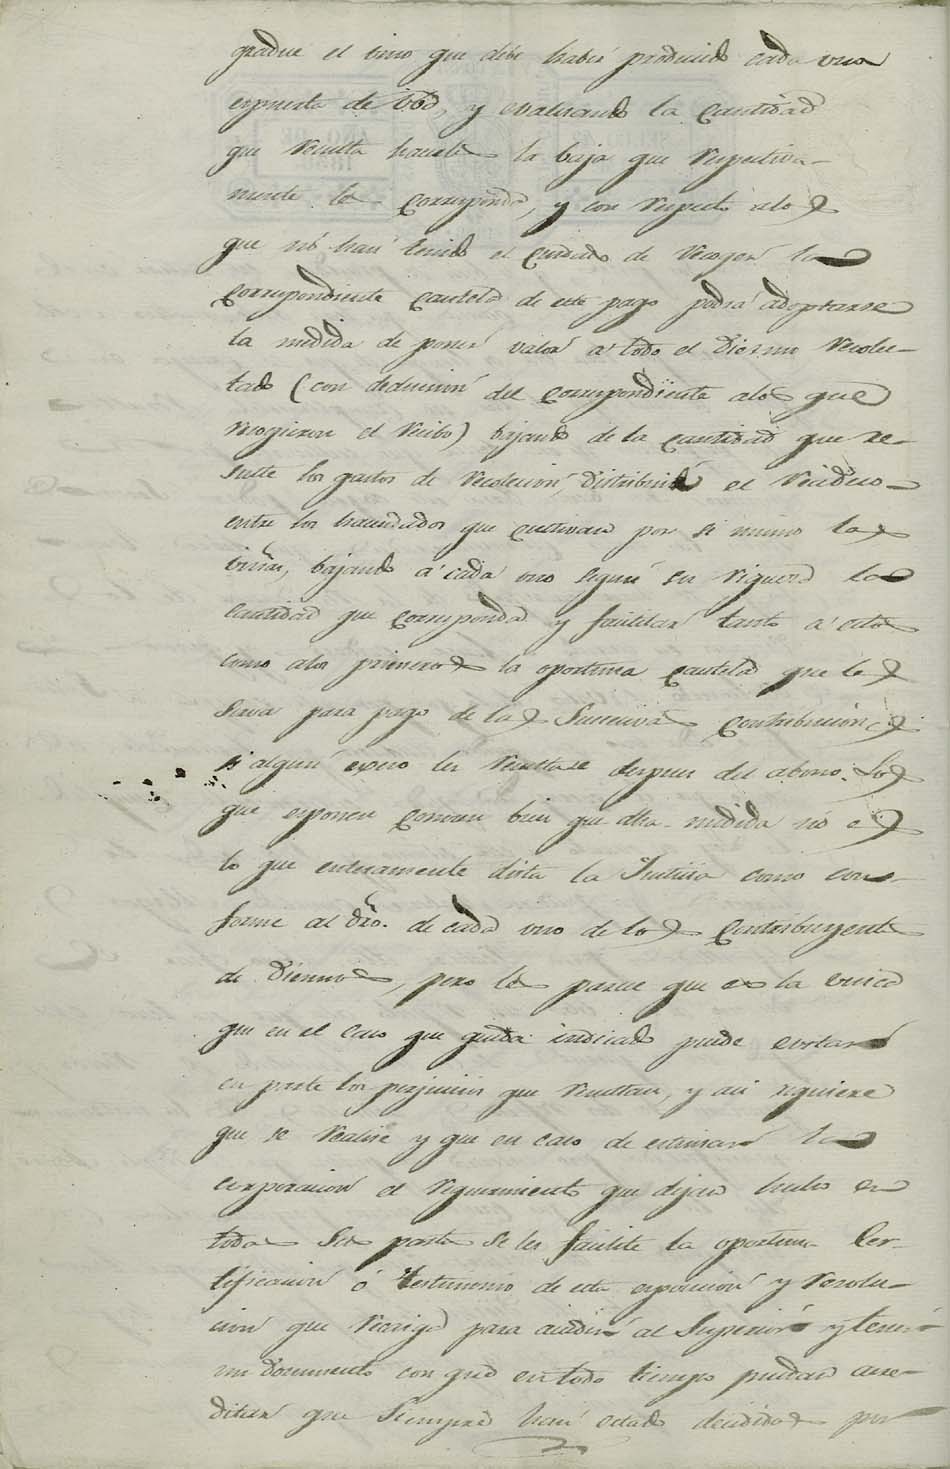 gradue el vino que debe haber producido cada una
espuerta de vbd, y evaluando la cantidad
que resulta hacerle la baja que respectiva-
mente le corresponda, y con respecto alos
que nó han tenido el cuidado de recojer la
correspondiente cautela de este pago podrá adoptarse
la medida de poner valor á todo el Diezmo recolec-
tado (con deduccion del correspondiente alos que
recogieron el recibo) bajando de la cantidad que re-
sulte los gastos de recoleccion, distribuir el residuo
entre los hacendados que cultivan por si mismo las
viñas, bajando á cada uno segun su riqueza la
cantidad que corresponda y facilitar tanto á estos
como alos primeros la oportuna cautela que les
sirva para pago de las sucesivas contribuciones
si algun exceso les resultase despues del abono. Los
que esponen conocen bien que dha. medida no es
lo que enteramente dicta la Justicia como con-
forme al dro. de cada uno de los contribuyentes
de Diezmos, pero les parece que es la unica
que en el caso que queda indicado puede cortar
en parte los perjuicios que resultan, y asi requiere
que se realise y que en caso de estimar la
corporacion el requerimiento que dejan hecho en
todas sus partes se les facilite la oportuna Cer-
tificacion ó testimonio de esta esposicion y resolu-
cion que recaiga para acudir al Superior y tener
un documento con que en todo tiempo puedan acre-
ditar que siempre han estado decididos por